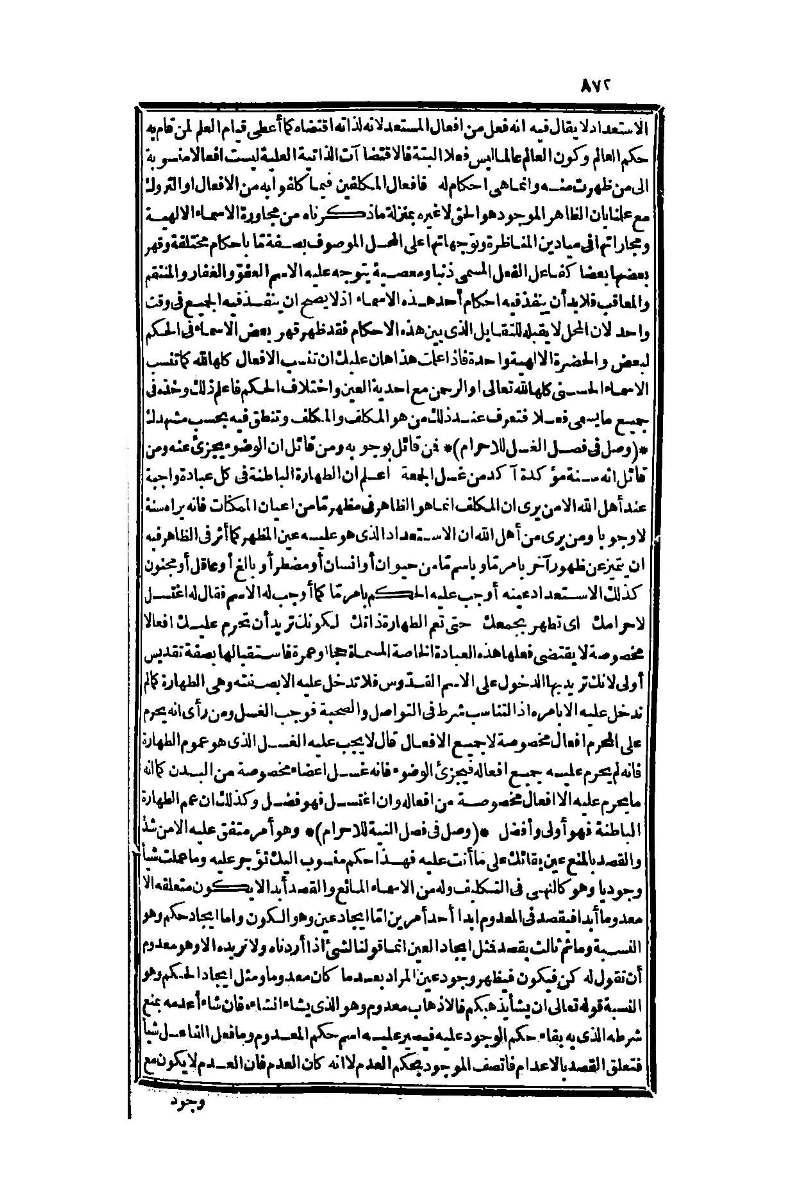 ٨٧٢
الاستعداد لا يقال فيه انه فعل من افعال المستعد لانه لذاته اقتضاه كما أعطى قيام العلم لمن قام به
حكم العالم وكون العالم عالما ليس فعلا البتة فالاقتضاآت الذاتية العلية ليست افعالا منسوبة
الى من ظهرت منه وانما هى احكام له فافعال المكلفين فيما كلفوا به من الافعال او التروك
مع علمنا بان الظاهر الموجود هو الحق لا غيره بمنزلة ما ذكرناه من محاورة الاسماء الالهية
ومجاراتها فى ميادين المناظرة وتوجهاتها على المحل الموصوف بصفة ما باحكام مختلفة وقهر
بعضها بعضا كفاعل الفعل المسمى ذنبا ومعصية يتوجه عليه الاسم العفو والغفار والمنتقم
والمعاقب فلا بد أن ينفذ فيه احكام أحد هذه الاسماء اذ لا يصح ان ينفذ فيه الجميع فى وقت
واحد لان المحل لا يقبله للتقابل الذى بين هذه الاحكام فقد ظهر قهر بعض الاسماء فى الحكم
لبعض والحضرة الالهية واحدة فاذا علمت هذا هان عليك ان تنسب الافعال كلها لله كما تنسب
الاسماء الحسنى كلها لله تعالى او الرحمن مع احدية العين واختلاف الحكم فاعلم ذلك وخذه فى
جميع ما يسمى فعلا فتعرف عند ذلك من هو المكلف والمكلف وتنطق فيه بحسب مشهدك
*(وصل فى فصل الغسل للاحرام)* فمن قائل بوجوبه ومن قائل ان الوضوء يجزئ عنه ومن
قائل انه سنة مؤكدة آكد من غسل الجمعة اعلم ان الطهارة الباطنة فى كل عبادة واجبة
عند أهل الله الا من يرى ان المكلف انما هو الظاهر فى مظهر ما من اعيان الممكنات فانه يراه سنة
لا وجوبا ومن يرى من أهل الله ان الاستعداد الذى هو عليه عين المظهر كما أثر فى الظاهر فيه
ان يتميز عن ظهور آخر بامر ما وباسم ما من حيوان أو انسان أو مضطر أو بالغ أو عاقل أو مجنون
كذلك الاستعداد عينه أوجب عليه الحكم بامر ما كما أوجب له الاسم فقال له اغتسل
لاحرامك اى تطهر بجمعك حتى تعم الطهارة ذاتك لكونك تريد أن تحرم عليك افعالا
مخصوصة لا يقتضى فعلها هذه العبادة الخاصة المسماة حجا او عمرة فاستقبالها بصفة تقديس
أولى لانك تريد بها الدخول على الاسم القدّوس فلا تدخل عليه الا بصفته وهى الطهارة كما لم
تدخل عليه الا بامره اذ التناسب شرط فى التواصل والصحبة فوجب الغسل ومن رأى انه يحرم
على المحرم افعال مخصوصة لا جميع الافعال قال لا يجب عليه الغسل الذى هو عموم الطهارة
فانه لم يحرم عليه جميع افعاله فيجزئ الوضوء فانه غسل اعضاء مخصوصة من البدن كما انه
ما يحرم عليه الا افعال مخصوصة من افعاله وان اغتسل فهو فضل وكذلك ان عم الطهارة
الباطنة فهو أولى وأفضل *(وصل فى فصل النية للاحرام)* وهو أمر متفق عليه الا من شذ
والقصد بالمنع عين بقائك على ما أنت عليه فهذا حكم منسوب اليك تؤجر عليه وما عملت شيأ
وجوديا وهو كالنهى فى التكليف وله من الاسماء المانع والقصد أبدا لا يكون متعلقه الا
معدوما أبدا فيقصد فى المعدوم ابدا أحد أمرين اما ايجاد عين وهو الكون واما ايجاد حكم وهو
النسبة وما ثم ثالث يقصد فمثل ايجاد العين انما قولنا لشئ اذا أردناه ولا نريده الا وهو معدوم
أن نقول له كن فيكون فيظهر وجود عين المراد بعدما كان معدوما ومثل ايجاد الحكم وهو
النسبة قوله تعالى ان يشأ يذهبكم فالاذهاب معدوم وهو الذى يشاء انشاءه فان شاء أعدمه بمنع
شرطه الذى به بقاء حكم الوجود عليه فيصير عليه اسم حكم المعدوم وما فعل الفاعل شيأ
فتعلق القصد بالاعدام فاتصف الموجود بحكم العدم لا انه كان العدم فان العدم لا يكون مع
وجود